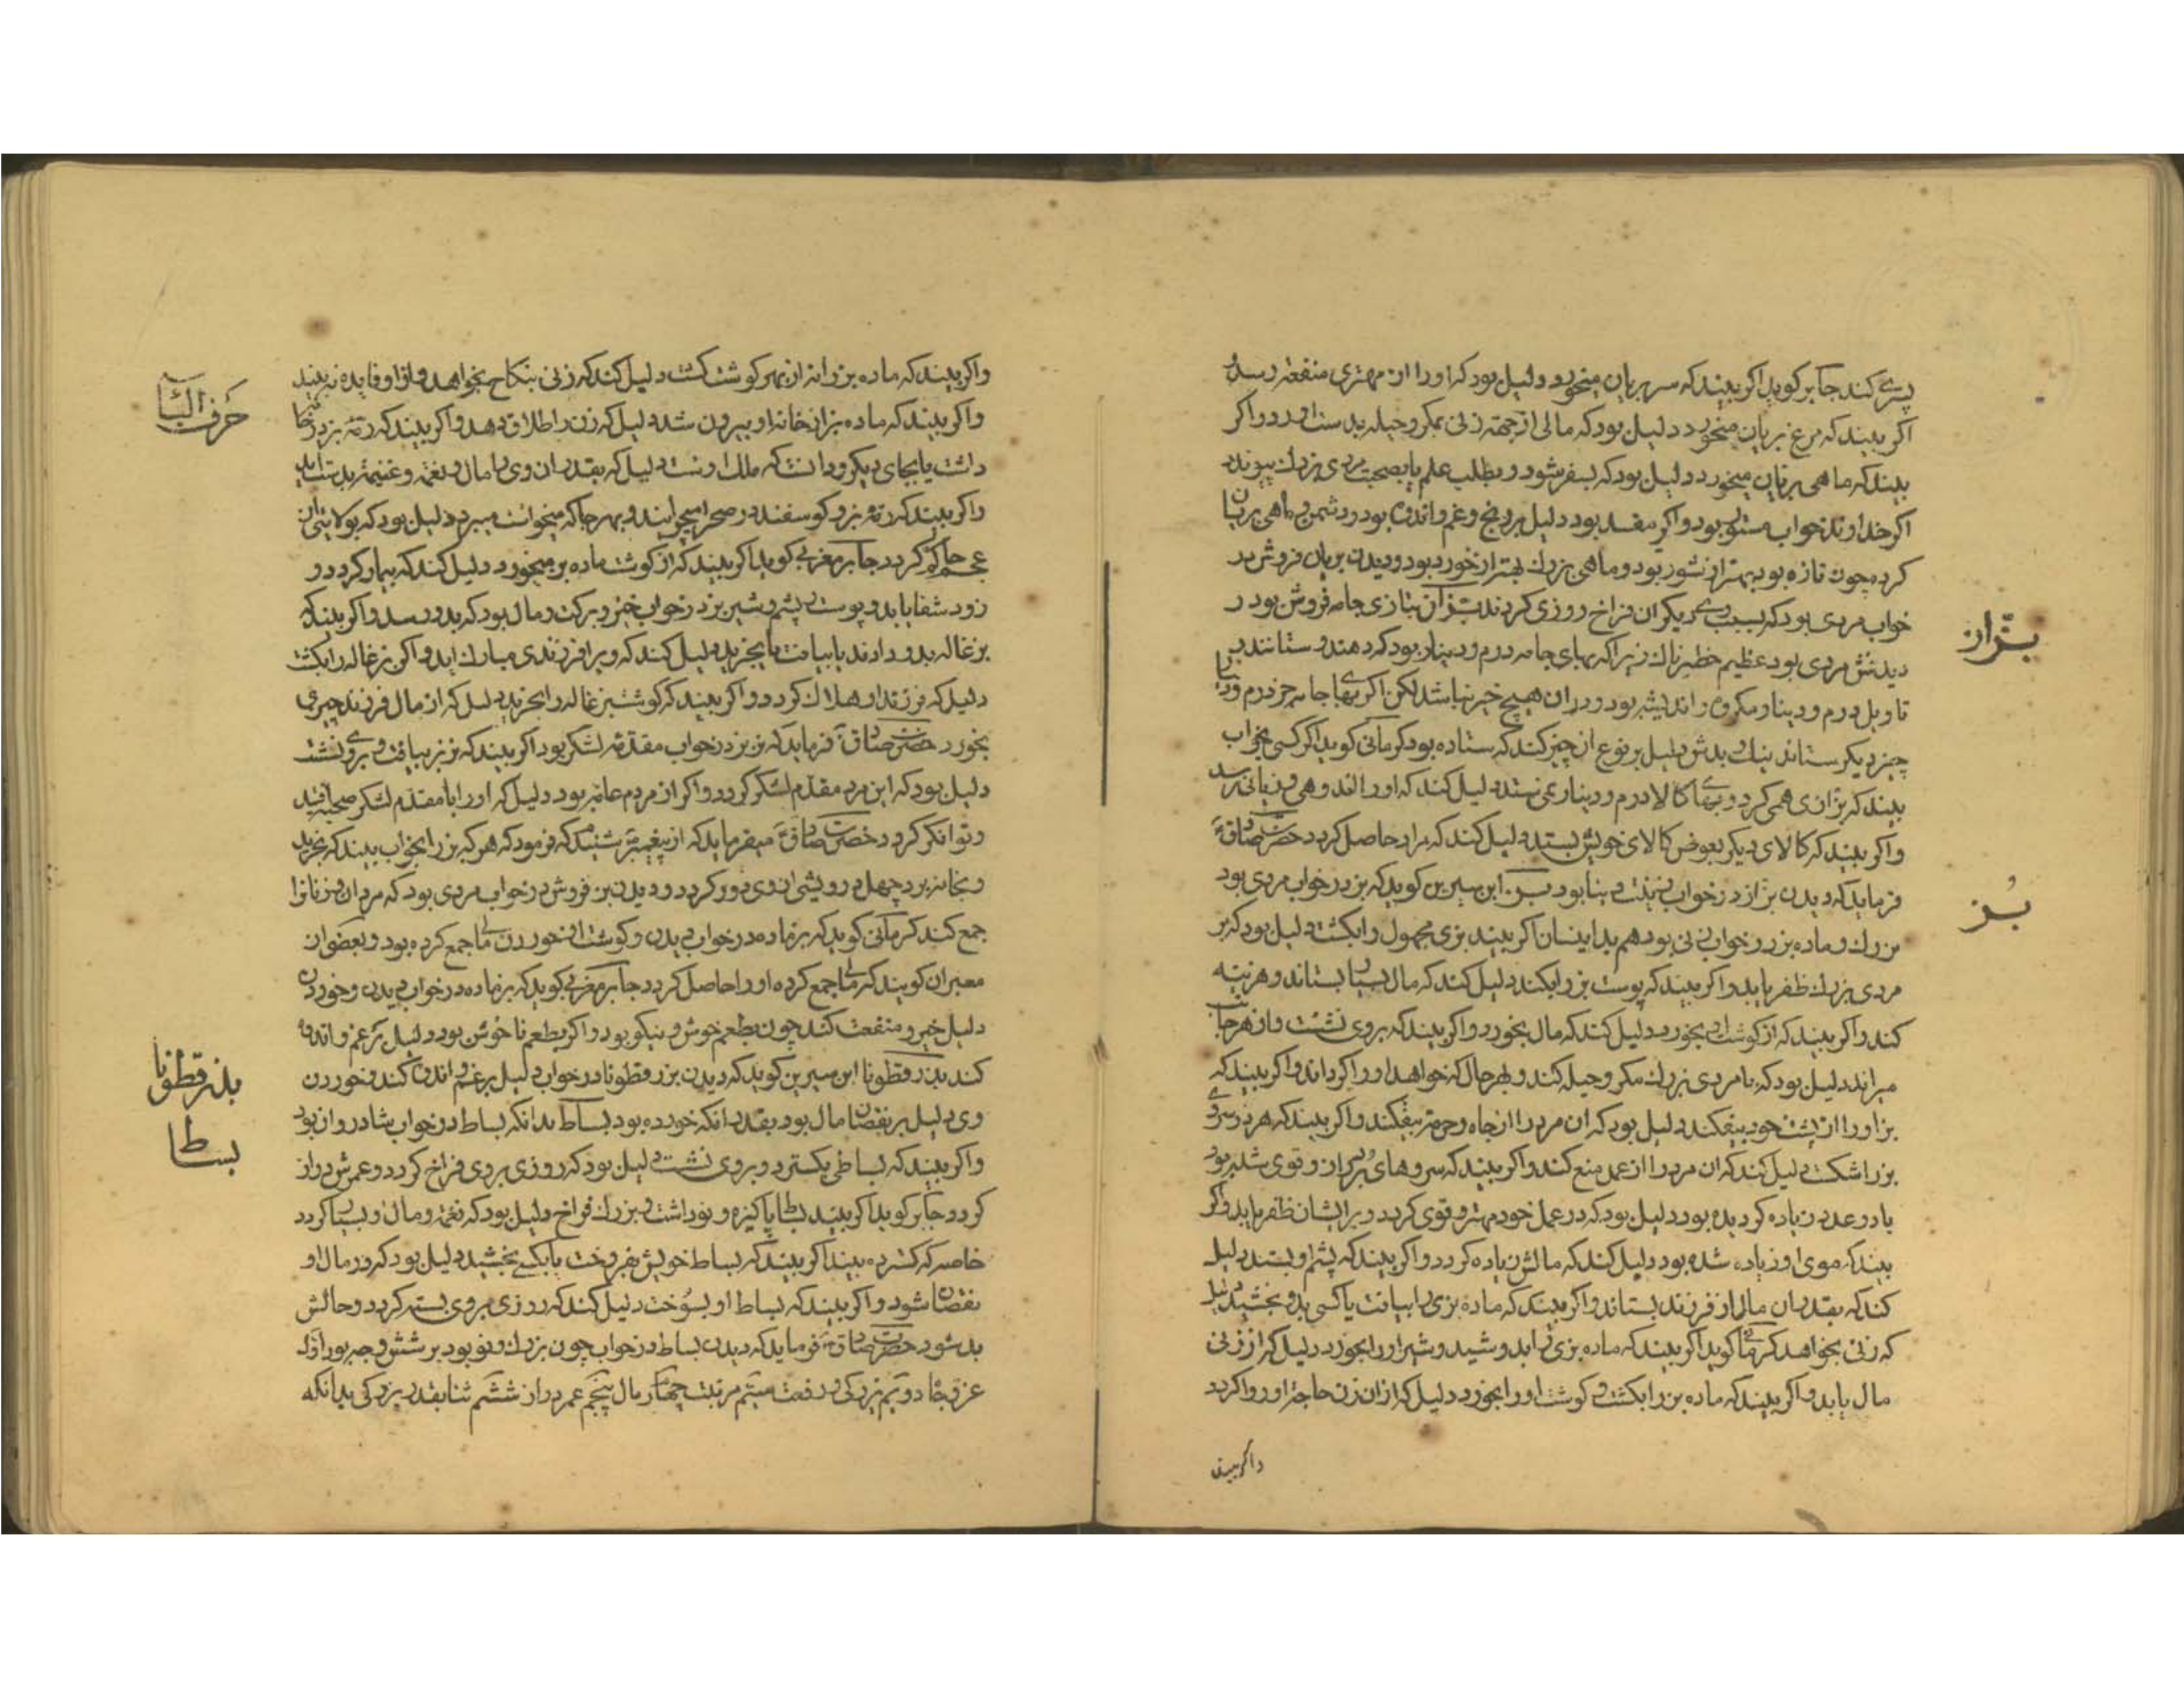 پسرے کند جابر کوید اکر بیند که سر بریان میخورد دلیل بود که او را از مهتری منفعة رسد و
اکر بیند که مرغ بریان میخورد دلیل بود که مالی از جهة زنی بمکر و حیله بدست اورد و اکر
بیند که ماهی بریان میخورد دلیل بود که بسفر شود و بطلب علم یا بصحبت مردی بزرك پیوندد
اکر خداوند خواب مستور بود و اکر مفسد بود دلیل بر رنج و غم و اندوه بود در دشمن و ماهی بریان
کرده چون تازه بود بهتر از شور بود و ماهی بزرك بهتر از خورد بود و دیدن بریان فروش در
خواب مردی بود که بسبب وے دیکران فراخ روزی کردند بزاز بتازی جامه فروش بود و
بزاز
دیدنش مردی بود عظیم خطیرناك زیرا که بهای جامه درم و دینار بود که دهند و ستانند و
تاویل درم و دینار مکروه و اندیشه بود و در ان هیچ خیر نباشد لکن اکر بهاے جامه جز درم و دینار
چیز دیکر ستاند نیك و بدش دلیل بر نوع ان چیز کند که ستاده بود کرمانی کوید اکر کسی بخواب
بیند که بزازی همی کرد و بهاے کالا درم و دینار می نستد دلیل کند که او را اندوهی و زیانی رسد
واکر بیند که کالای دیکر بعوض کالای خویش بستد دلیل کند که مراد حاصل کردد حضرت صادق ع
فرماید که دیدن بزاز در خواب زینت دنیا بود بز ابن سیرین کوید که بز در خواب مردی بود
بُز
بزرك و ماده بز در خواب زنی بود هم بدینسان اکر بیند بزی مجهول را بکشت دلیل بود که بر
مردی بزرك ظفر یابد و اکر بیند که پوست بز را بکند دلیل کند که مال بسیار بستاند و هزینه
کند و اکر بیند که از کوشت او بخورد دلیل کند که مال بخورد و اکر بیند که بر وی نشست و از هر جانب
میراند دلیل بود که با مردی بزرك مکر و حیله کند و بهر حال که خواهد او را کرداند و اکر بیند که
بز او را از پشت خود بیفکند دلیل بود که ان مرد را از جاه و حرمة بیفکند و اکر بیند که هر دو سروے
بز را شکست دلیل کند که ان مرد را از عمل منع کند و اکر بیند که سروهای بز کران و قوی شده بود
یا دو عدد زیاده کردیده بود دلیل بود که در عمل خود مهتر و قوی کردد و بر ایشان ظفر یابد و اکر
بیند که موی او زیاده شده بود دلیل کند که مالش زیاده کردد و اکر بیند که پشم او بستد دلیل
کند که بقدر ان مال از فرزند بستاند و اکر بیند که ماده بزی را بیافت یا کسی بدو بخشید دلیل
که زنی بخواهد کرمانی کوید اکر بیند که ماده بزی زاید و شید و شیر او را بخورد دلیل که از زنی
مال یابد و اکر بیند که ماده بز را بکشت و کوشت او را بخورد دلیل که از ان زن حاجة او روا کردد
واکر بیند
واکر بیند که ماده بز را نه از بهر کوشت کشت دلیل کند که زنی بنکاح بخواهد و از او فایده نه بیند
حرف الباء
واکر بیند که ماده بز از خانه او بیرون شد دلیل که زن را طلاق دهد و اکر بیند که رمه بز در خانه
داشت یا بجای دیکر و دانست که ملك اوست دلیل که بقدر ان وی را مال و نعمة و غنیمة بدست اید
واکر بیند که رمه بز و کوسفند در صحرا میچرانید و بهر جا که میخواست میبرد دلیل بود که بولایتی از
عجم حاکم کردد جابر مغربی کوید اکر بیند که از کوشت ماده بز میخورد دلیل کند که بیمار کردد و
زود شفا یابد و پوست و پشم و شیر بز در خواب خیر و برکت و مال بود که بدو رسد و اکر بیند که
بزغاله بدو دادند یا بیافت یا بخرید دلیل کند که ویرا فرزندی مبارك اید و اکر بزغاله را بکشت
دلیل که فرزند او هلاك کردد و اکر بیند که کوشت بزغاله را بخرید دلیل که از مال فرزند چیزی
بخورد حضرت صادق ع فرماید که نر بز در خواب مقدمه لشکر بود اکر بیند که نر بز بیافت و بروے نشست
دلیل بود که این مرد مقدم لشکر کردد و اکر از مردم عامه بود دلیل که او را با مقدم لشکر صحبت افتد
و توانکر کردد حضرت صادق ع میفرماید که از پیغمبر شنیدم که فرمود که هر که بز را بخواب بیند که بخرید
و بخانه برد چهل درویشی از وی دور کردد و دیدن بز فروش در خواب مردی بود که مردان و زنان را
جمع کند کرمانی کوید که بز ماده در خواب دیدن و کوشت ان خوردن مال جمع کرده بود و بعضی از
معبران کویند که مال جمع کرده او را حاصل کردد جابر مغربی کوید که بز ماده در خواب دیدن و خوردن
دلیل خیر و منفعت کند چون بطعم خوش و نیکو بود و اکر بطعم ناخوش بود دلیل بر غم و اندوه
کند بذر قطونا ابن سیرین کوید که دیدن بزر قطونا در خواب دلیل بر غم و اندوه کند و خوردن
بذر قطونا
وی دلیل بر نقصان مال بود بقدر انکه خورده بود بساط بدانکه بساط در خواب شادروان بود
بساط
واکر بیند که بساطی بکسترد و بروی نشست دلیل بود که روزی بروی فراخ کردد و عمرش دراز
کردد جابر کوید اکر بیند بساط پاکیزه و نو داشت و بزرك و فراخ دلیل بود که نعمة و مال او بسیار کردد
خاصه که کسترده بیند اکر بیند که بساط خویش بفروخت یا بکسے بخشید دلیل بود که در مال او
نقصان شود و اکر بیند که بساط او بسوخت دلیل کند که روزی بروی بسته کردد و حالش
بد شود حضرت صادق ع فرماید که دیدن بساط در خواب چون بزرك و نو بود بر شش وجه بود اول
عز و جاه دویم بزرکی و رفعت سیم مرتبت چهارم مال پنجم عمر دراز ششم ثنا بقدر بزرکی بدانکه